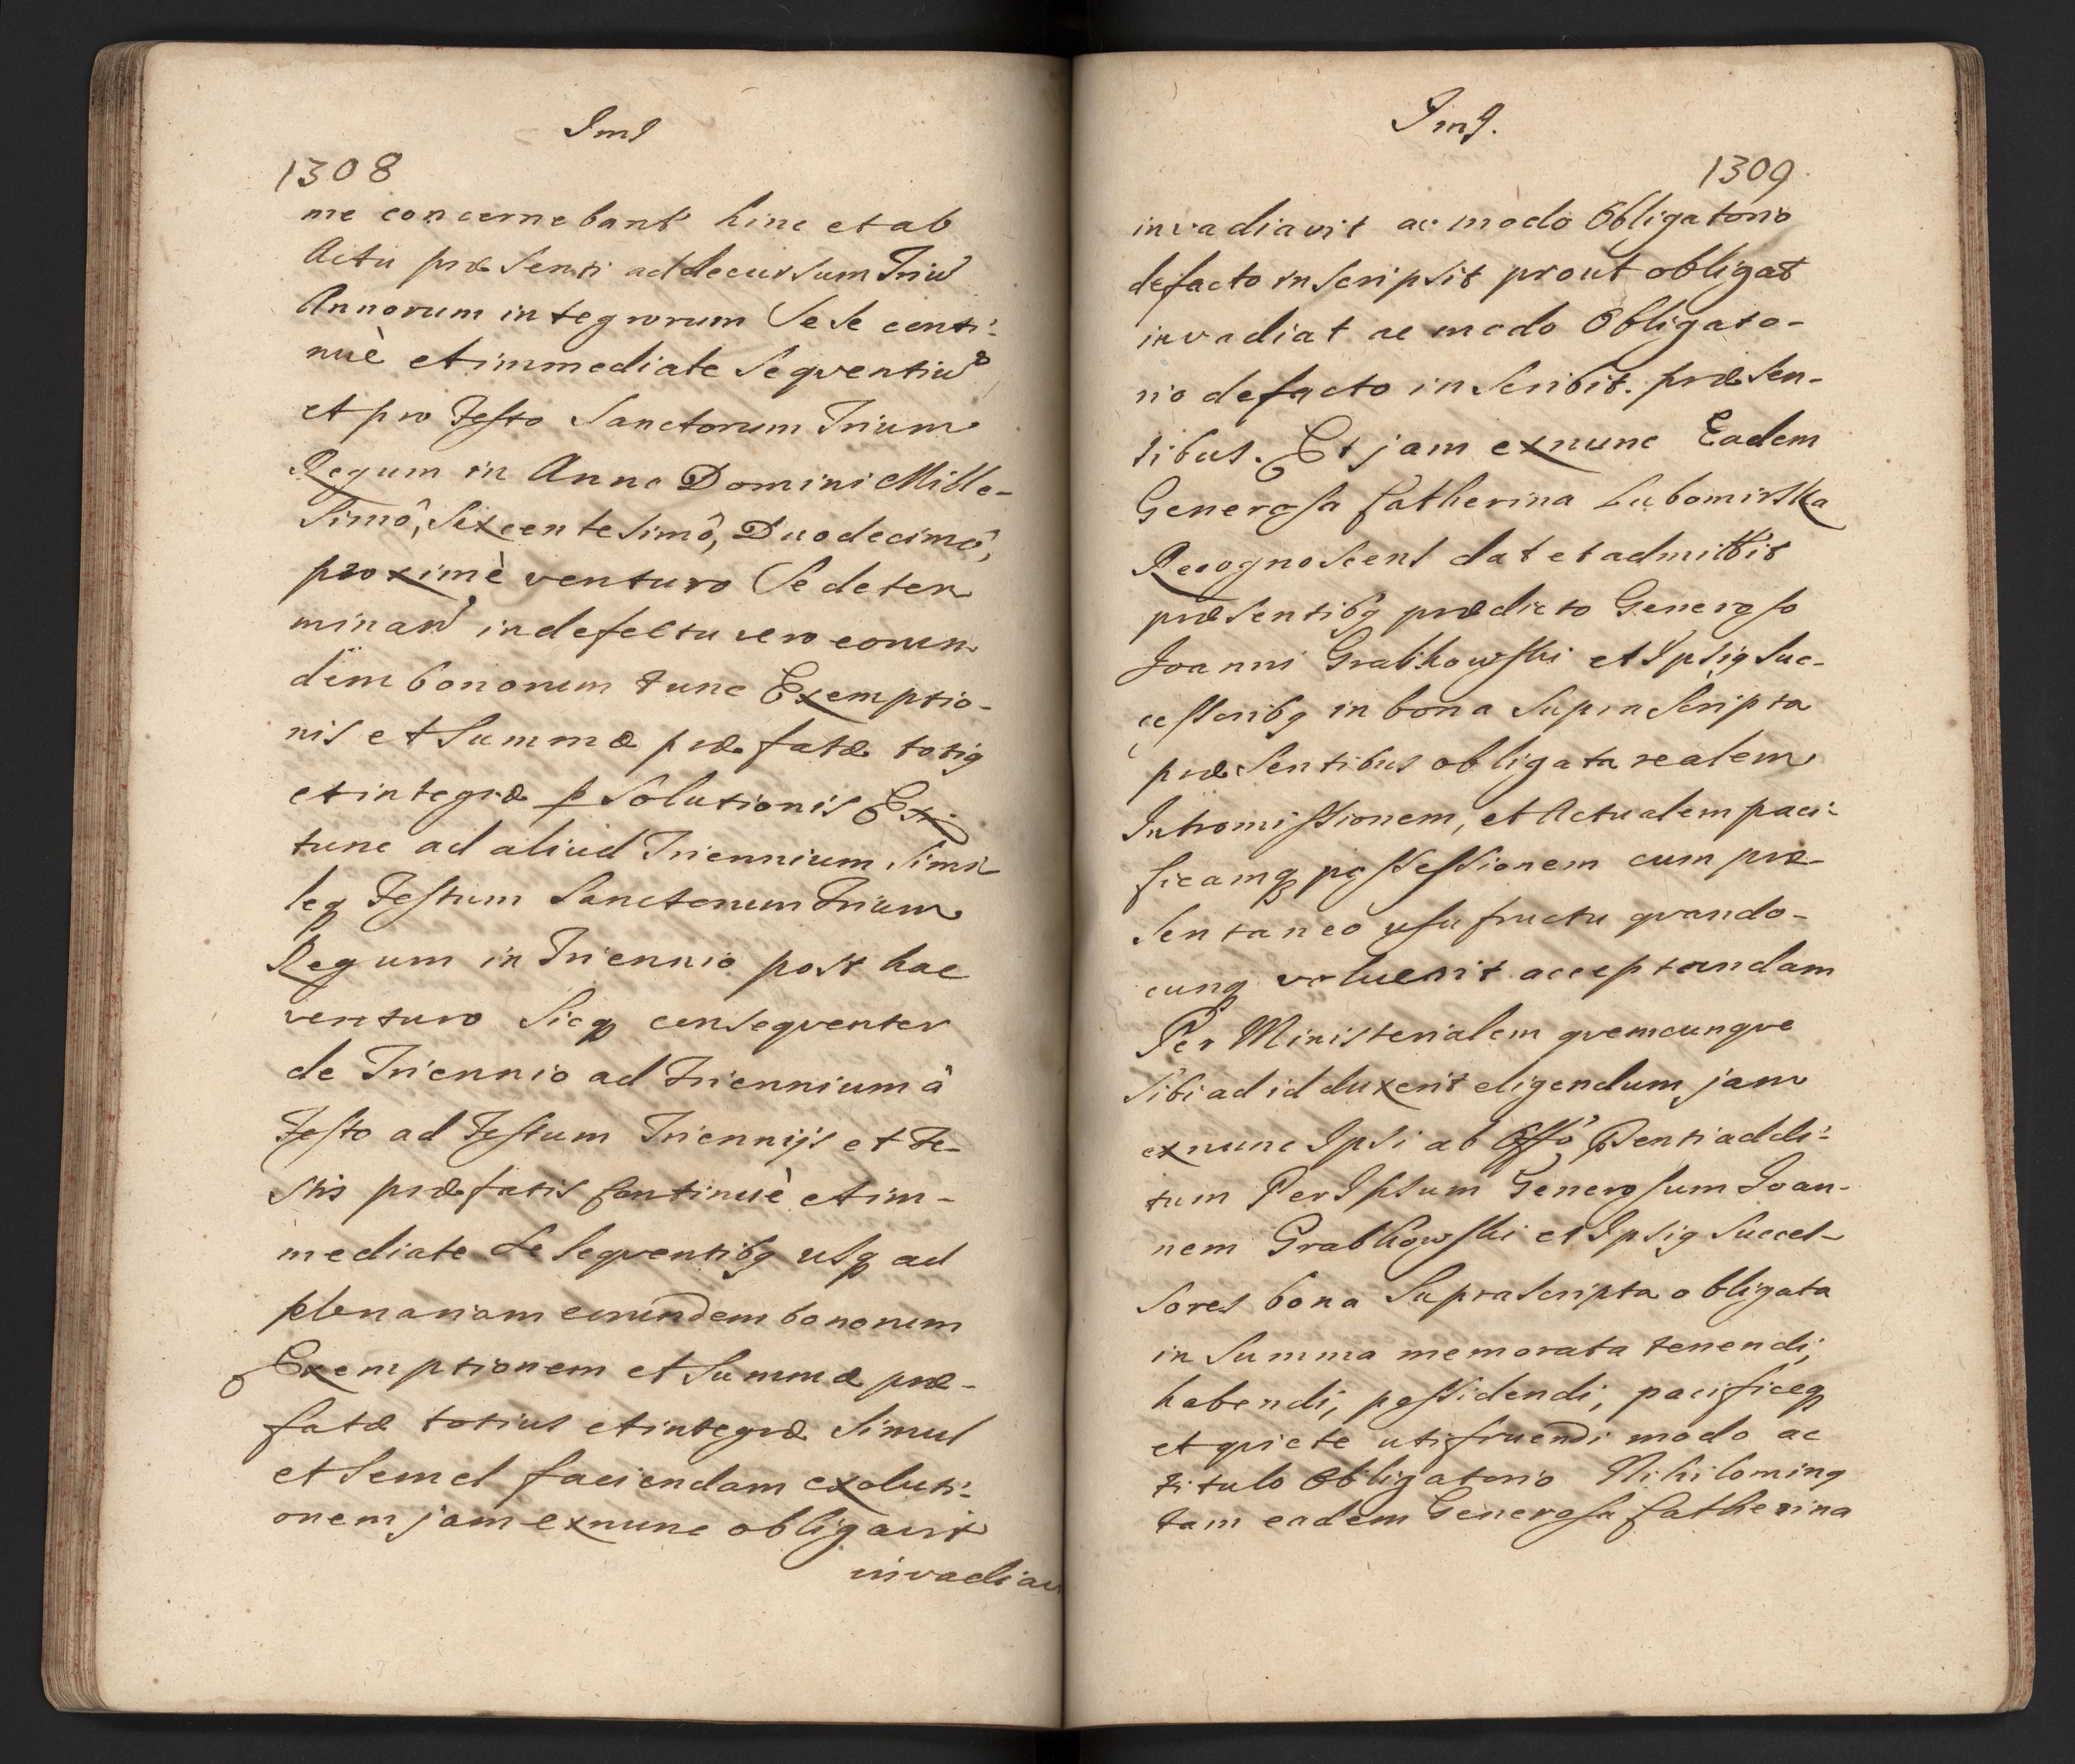 Ims
1308
me concernebant hinc et ab
Actu præsenti ad decursum Triu
Annorum integrorum Sese conti-
nuè et immediate Sequentiu
et pro Festo Sanctorum Trium
Regum in Anno Domini Mille-
simô, Sexcentesimô, Duodecimô,
proximè venturo Se deter
minan in defectu vero eorun
dem bonorum tunc Exemptio-
nis et Summæ præfatæ totiq
et integræ p solutionis Ex
tunc ad aliud Triennium Simi
leq Festum Sanctorum Trium
Regum in Triennio post hac
venturo Sicq consequenter
de Triennio ad triennium â
Festo ad Festum Triennijs et Fe-
stis præfatis continuè et im-
mediate Se Sequentibq usq ad
plenariam eorundem bonorum
Exemptionem et Summæ præ-
fatæ totius et integræ Simul
et Semel faciendam exoluti-
onem jam exnunc obligavit
invadiav
Ims.
1309
invadiavit ac modo Obligatorio
defacto inscripsit prout obligat
invadiat ac modo Obligato-
rio defacto inscribit præsen-
tibus. Et jam exnunc Eadem
Generosa Catherina Lubomirska
Recognoscens dat et admittit
præsentibq prædicto Generoso
Joanni Grabkowski et Ipsiq Suc-
cessoribq in bona Suprascripta
præsentibus obligata realem
Intromissionem, et Actualem paci-
ficamq possessionem cum præ-
sentaneo usufructu quando-
cunq voluerit acceptandam
Per Ministerialem quemcunque
Sibi ad id duxerit eligendum jam
exnunc Ipsi ab Offo Psenti addi-
tum Per Ipsum Generosum Joan-
nem Grabkowski et Ipsiq Succes-
sores bona Suprascripta obligata
in Summa memorata tenendi,
habendi, possidendi, pacificeq
et quiete utifruendi modo ac
titulo Obligatorio Nihilominq
tam eadem Generosa Catherina